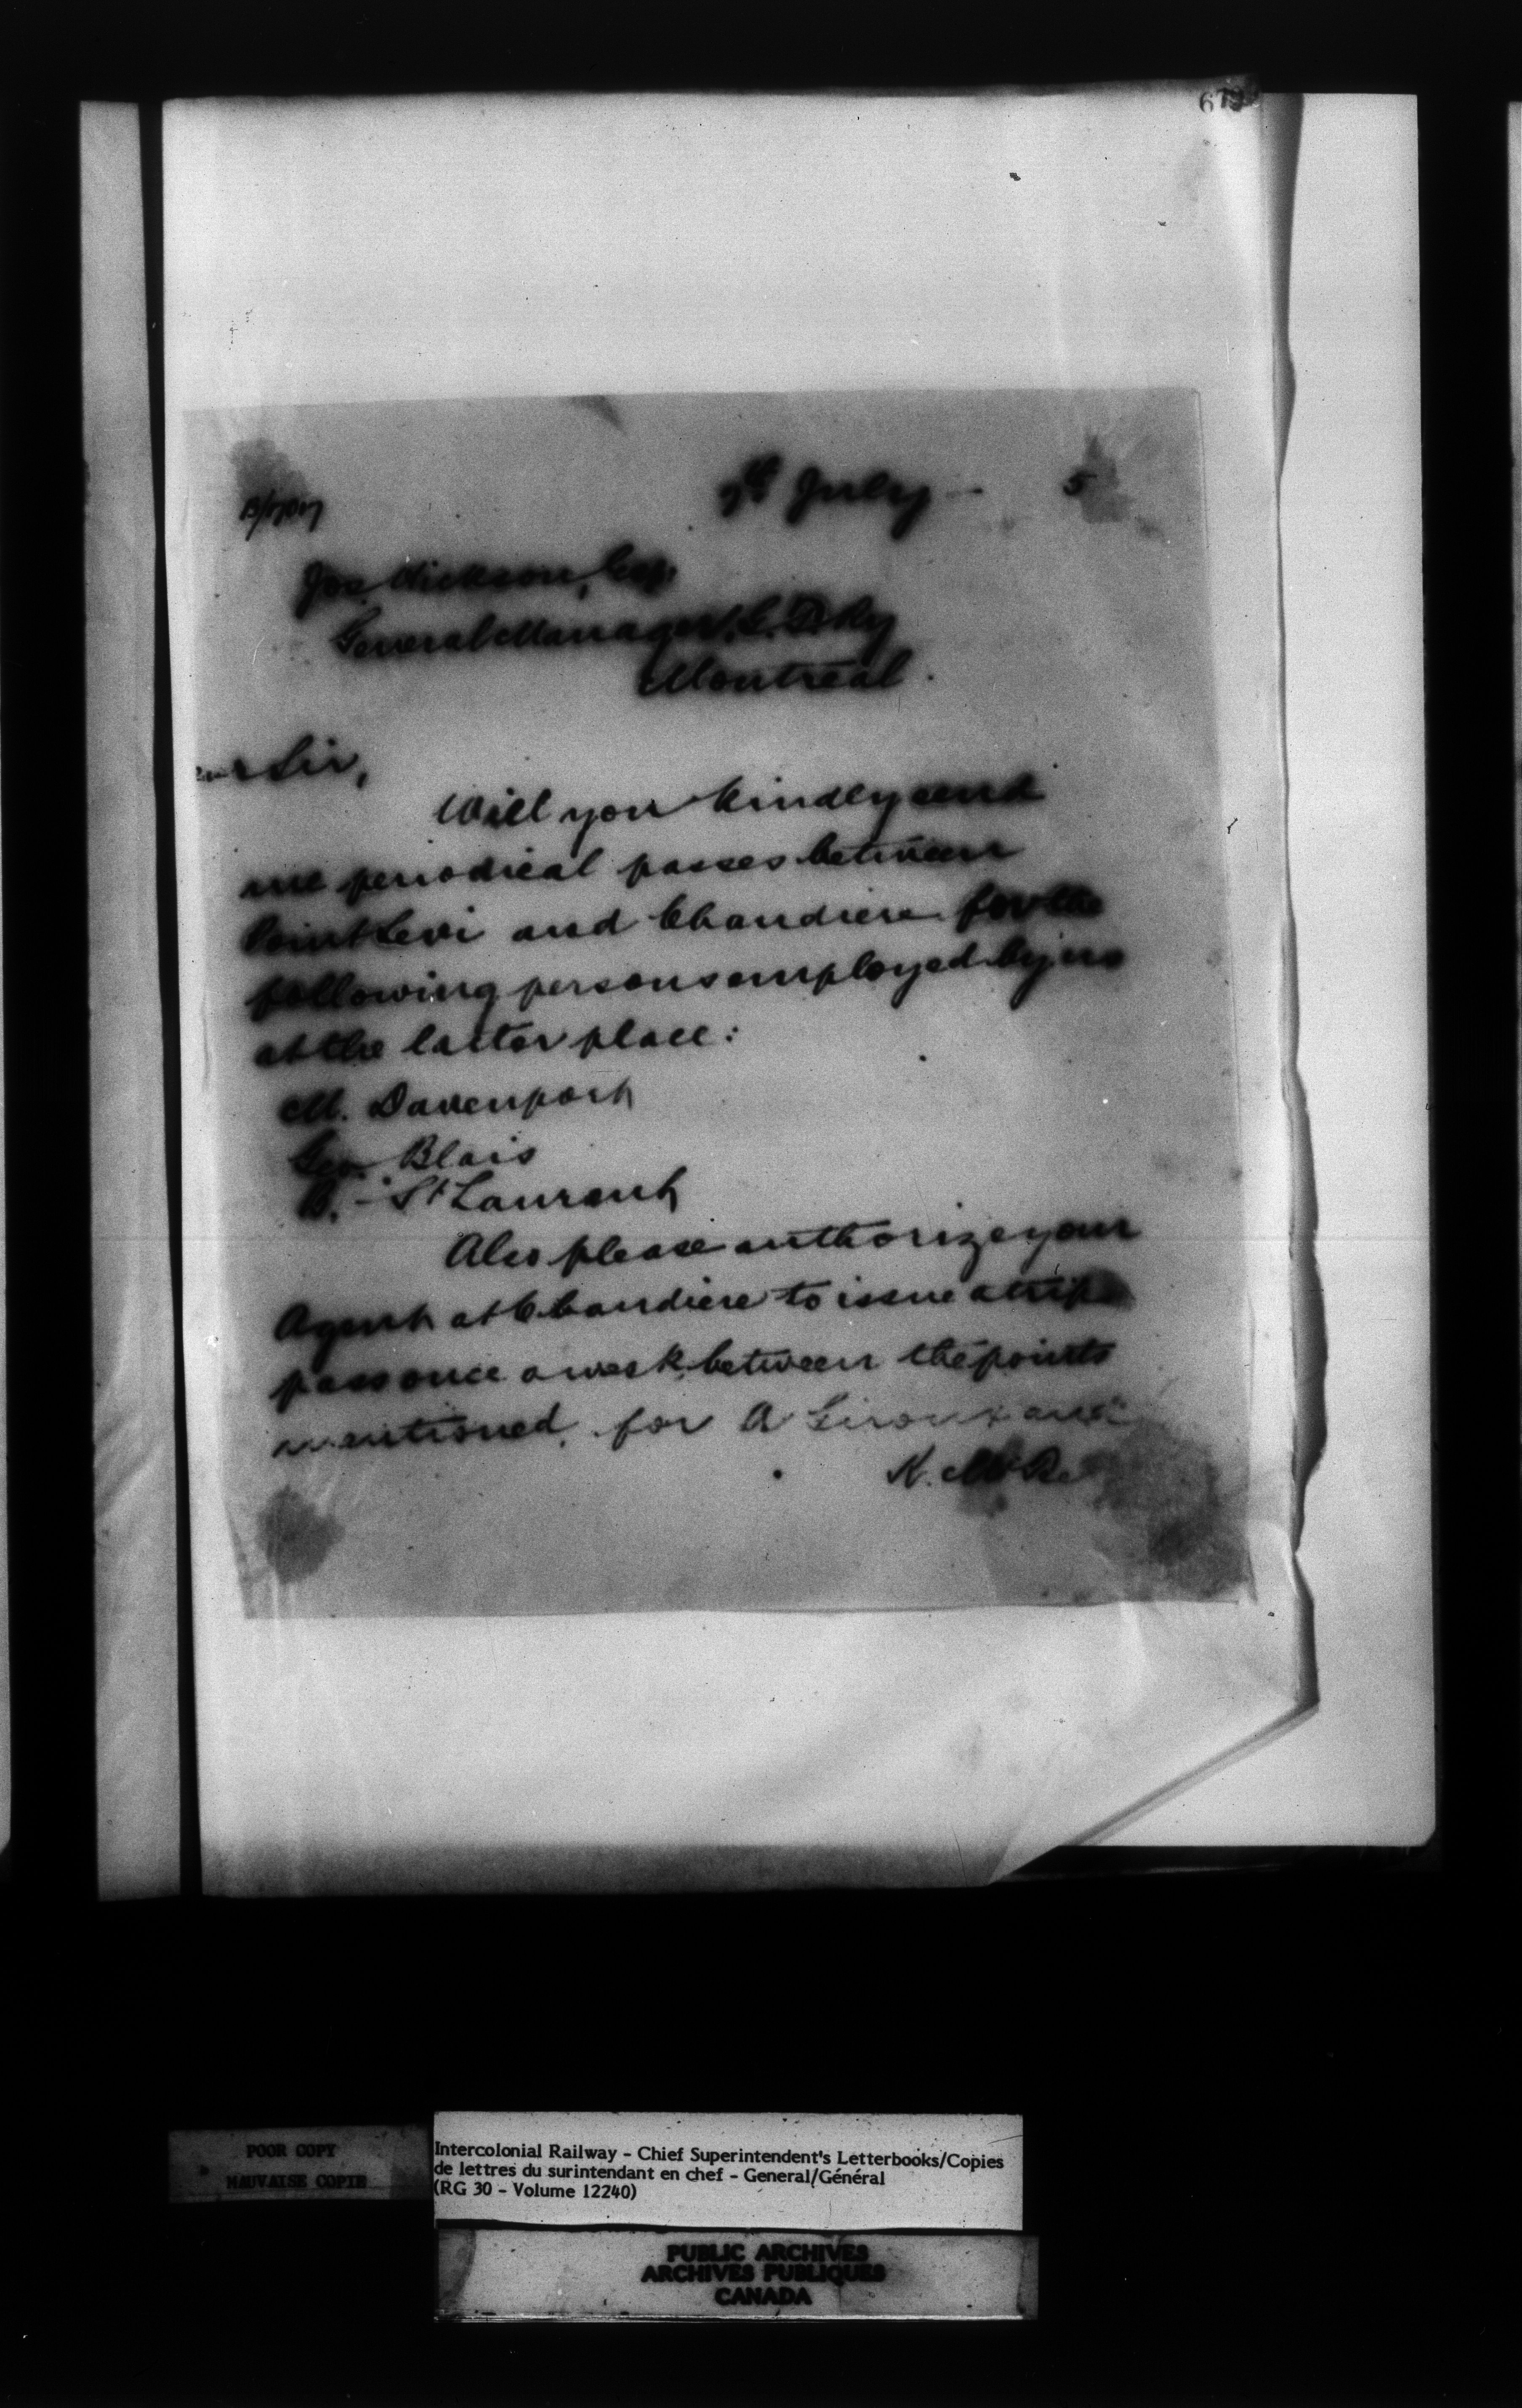 7th July 5
Jos. Hickson, Esq.
General Manager, G. T. Ry
Montreal.
Sir,
Will you kindly send
me periodical passes between
Point Levi and Chaudiere for the
following persons employed by us
at the latter place:
M. Davenport
Geo. Blais
B. St Laurent
Also please authorize your
Agent at Chaudiere to issue a trip
pass once a week between the points
mentioned, for A
K.
POOR COPY
MAUVAISE COPIE
Intercolonial Railway - Chief Superintendent's Letterbooks/Copies
de lettres du surintendant en chef - General/Général
(RG 30 - Volume 12240)
PUBLIC ARCHIVES
ARCHIVES PUBLIQUES
CANADA